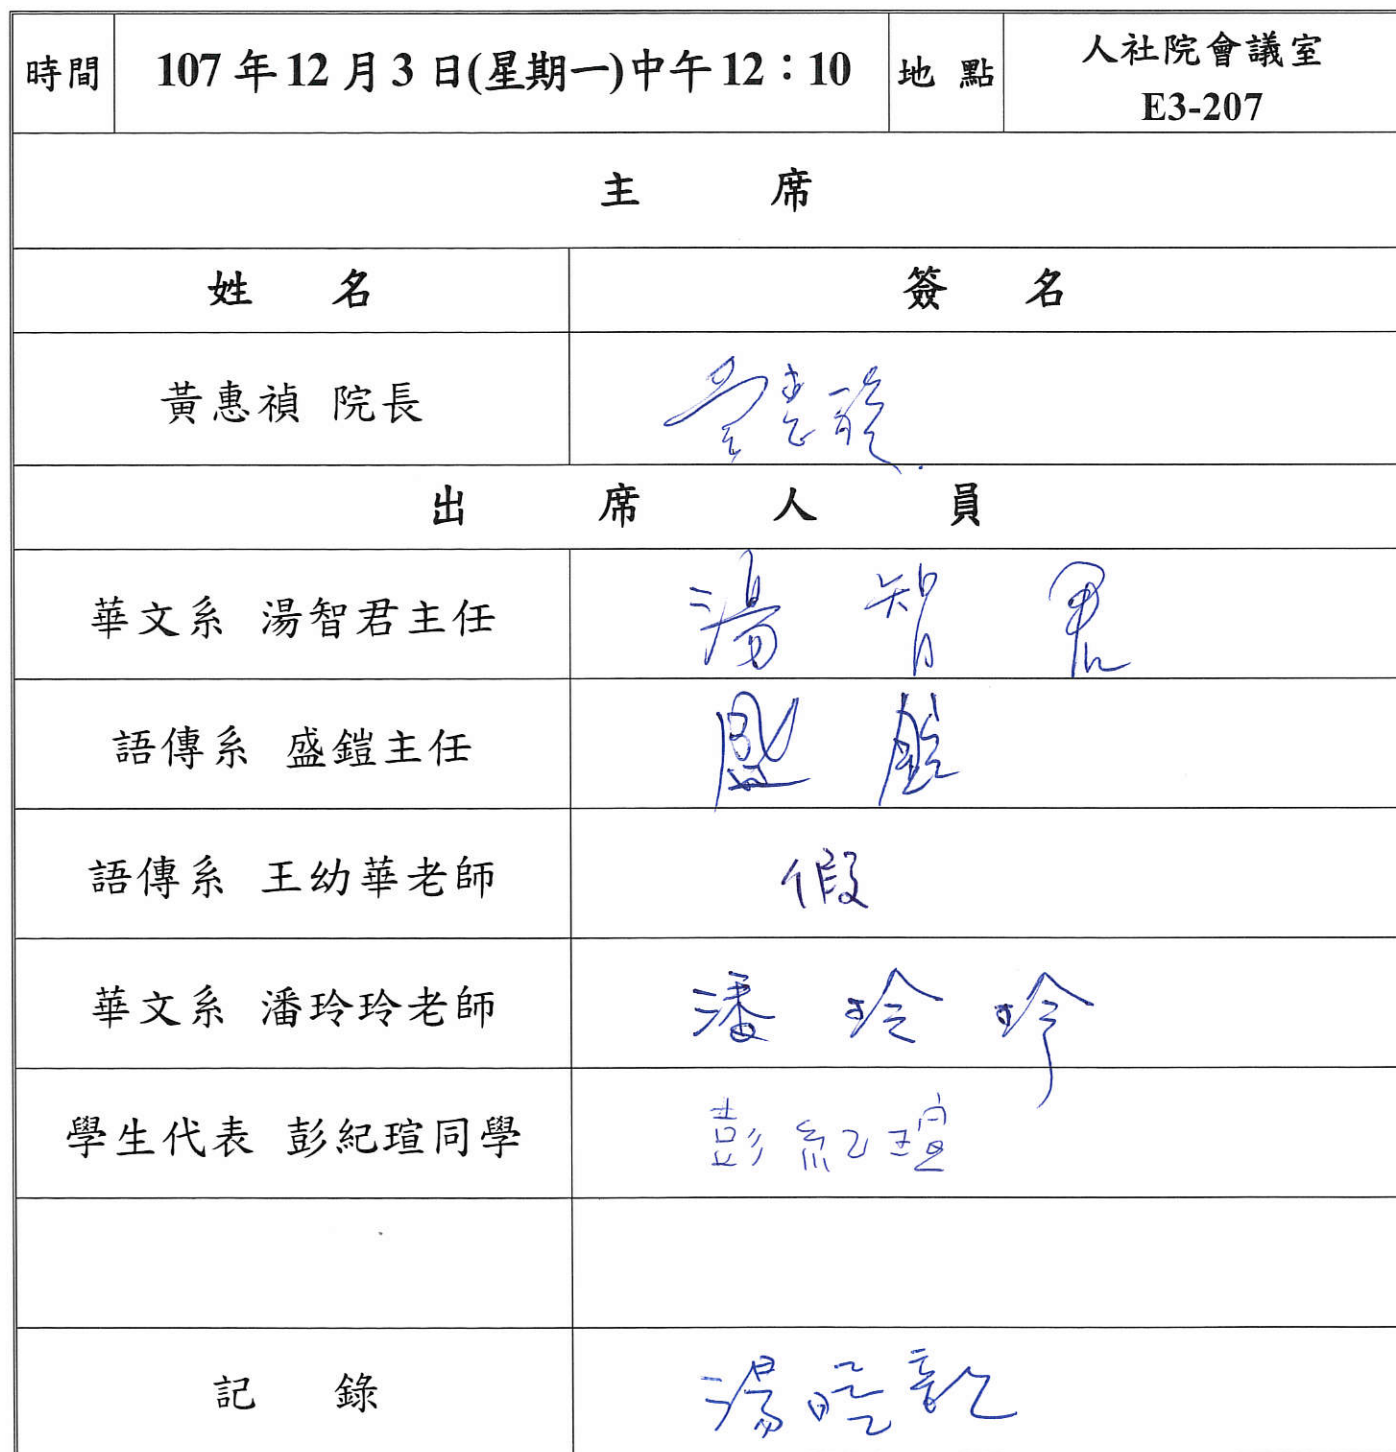 時間 107年12月3日(星期一)中午12：10 地 點 人社院會議室
E3-207
主 席
姓 名 簽 名
黃惠禎 院長 黃惠禎
出 席 人 員
華文系 湯智君主任 湯智君
語傳系 盛鎧主任 盛鎧
語傳系 王幼華老師 假
華文系 潘玲玲老師 潘玲玲
學生代表 彭紀瑄同學 彭紀瑄
記 錄 湯